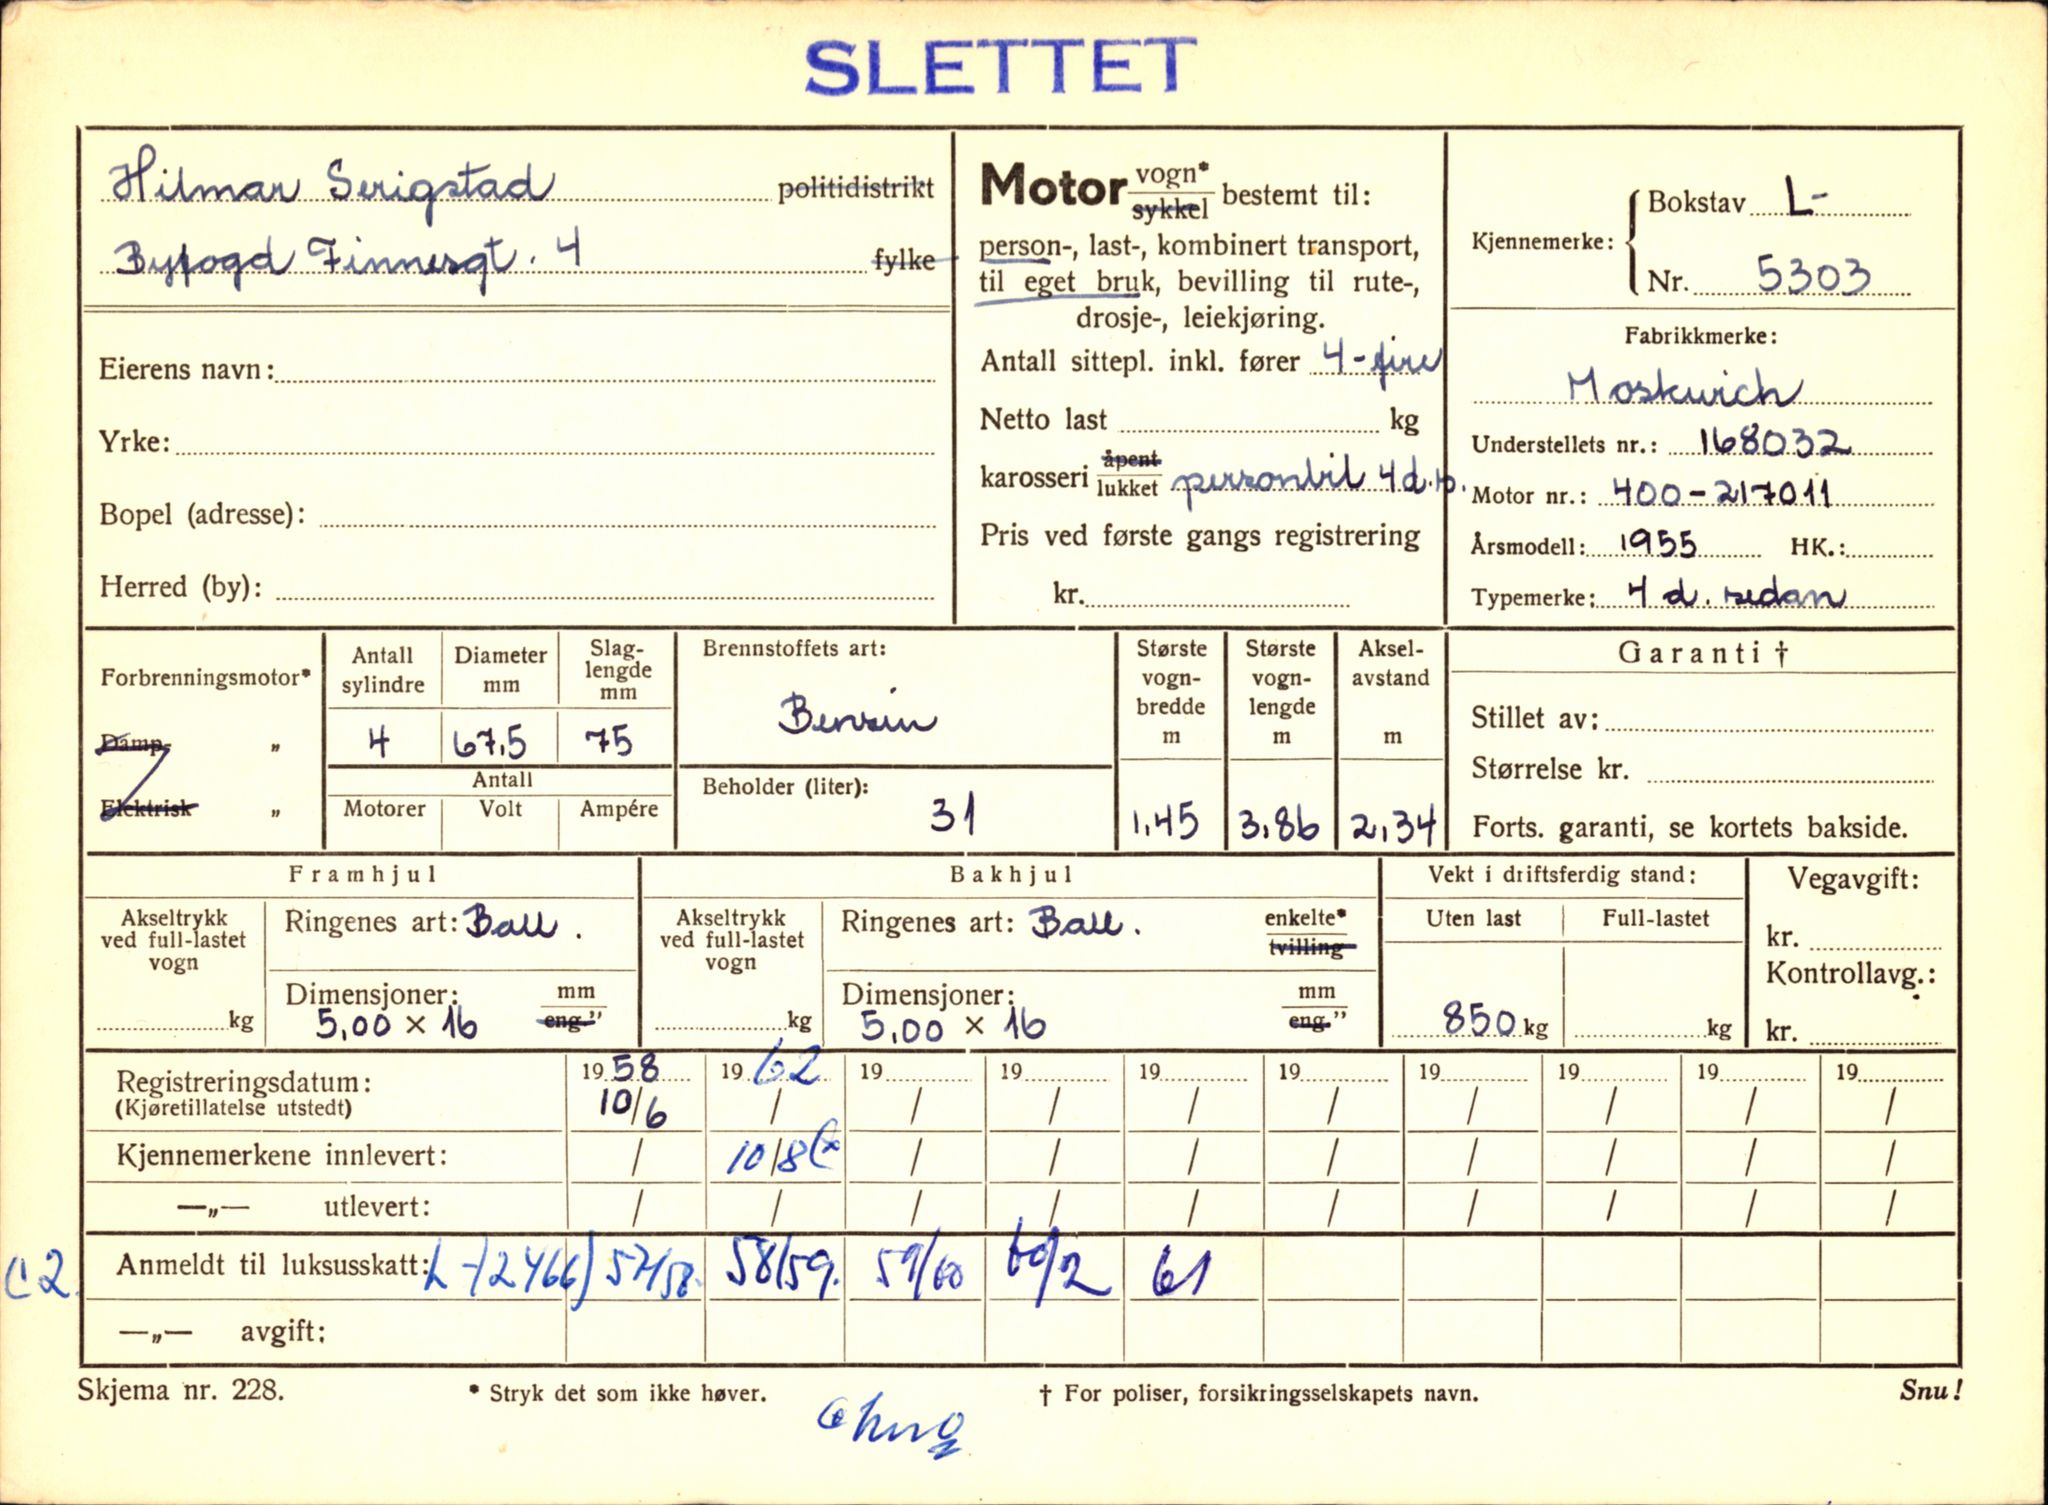 SLETTET
Hilmar Serigstad politidistrikt
Byfogd Finnesgt. 4 fylke
Eierens navn:
Yrke:
Bopel (adresse):
Herred (by):
Motor vogn* sykkel bestemt til:
person-, last-, kombinert transport,
til eget bruk, bevilling til rute-,
drosje-, leiekjøring.
Antall sittepl. inkl. fører 4-fire
Netto last kg
karosseri åpent lukket personbil 4 d.
Pris ved første gangs registrering
kr.
Kjennemerke: Bokstav L-
Nr. 5303
Fabrikkmerke:
Moskwich
Understellets nr.: 168032
Motor nr.: 400-217011
Årsmodell: 1955 HK.:
Typemerke: 4 d. sedan
Forbrenningsmotor*
Damp- „
Elektrisk „
Antall sylindre
4
Diameter mm
67,5
Slag-
lengde
mm
75
Antall
Motorer Volt Ampére
Brennstoffets art:
Bensin
Beholder (liter):
31
Største
vogn-
bredde
m
1,45
Største
vogn-
lengde
m
3,86
Aksel-
avstand
m
2,34
Garanti †
Stillet av:
Størrelse kr.
Forts. garanti, se kortets bakside.
Framhjul
Akseltrykk
ved full-lastet
vogn
kg
Ringenes art: Ball.
Dimensjoner: mm eng."
5,00 × 16
Bakhjul
Akseltrykk
ved full-lastet
vogn
kg
Ringenes art: Ball. enkelte* tvilling
Dimensjoner: mm eng."
5,00 × 16
Vekt i driftsferdig stand:
Uten last Full-lastet
850 kg kg
Vegavgift:
kr.
Kontrollavg.:
kr.
Registreringsdatum: 19 58 19 62 19 19 19 19 19 19 19 19
(Kjøretillatelse utstedt) 10/6 / / / / / / / / /
Kjennemerkene innlevert: / 10/8 / / / / / / / /
—„— utlevert: / / / / / / / / / /
C2. Anmeldt til luksusskatt: L-12466) 57/58. 58/59. 59/60 60/2 61
—„— avgift:
Skjema nr. 228. * Stryk det som ikke høver. † For poliser, forsikringsselskapets navn. Snu!